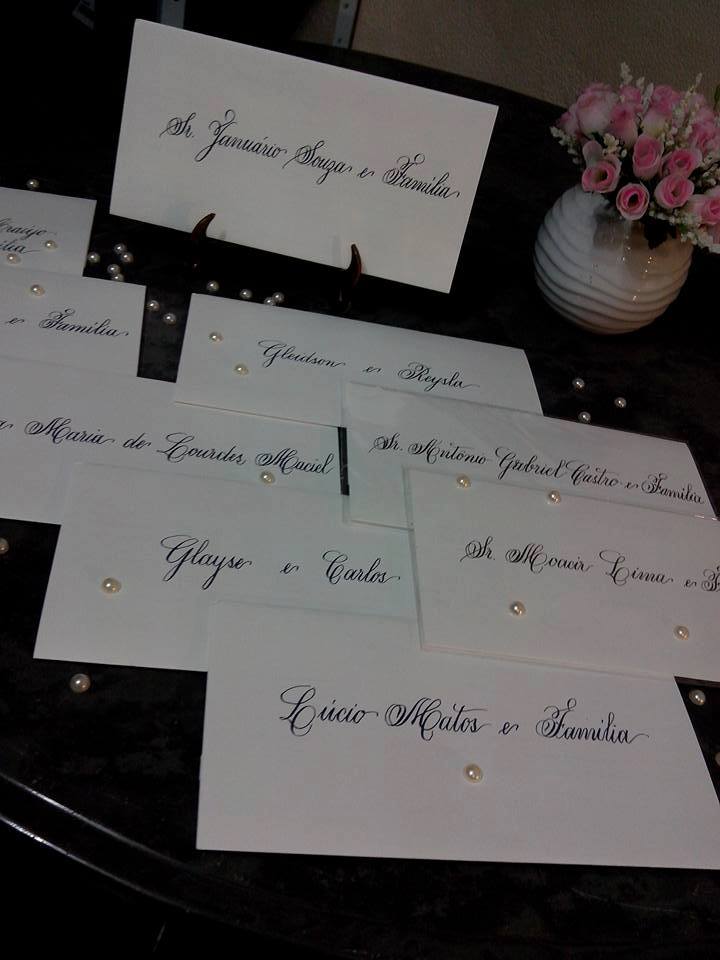 Sr. Januário Souza e Familia
Araújo
e Familia
Gleidson e Reysla
Maria de Lourdes Maciel
Sr. Antonio Gabriel Castro e Familia
Glayse e Carlos
Sr. Moacir Lima e
Lúcio Matos e Familia